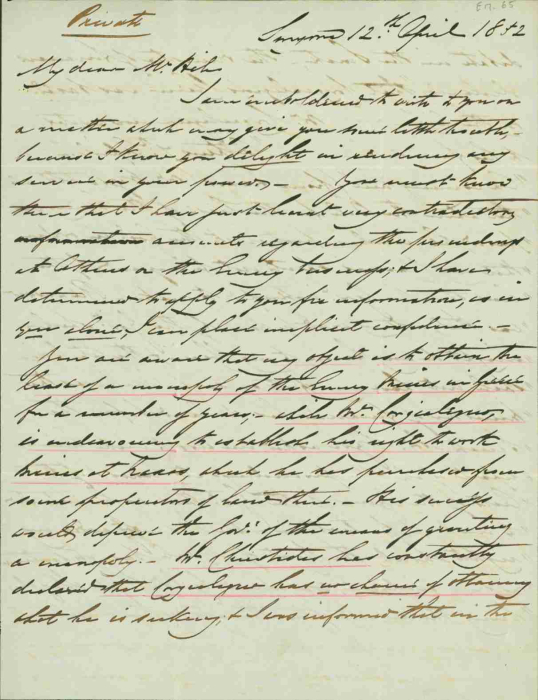 Em. 65
Private
Smyrna 12th April 1852
My dear Mr. Hill
I am emboldened to write to you on
a matter which may give you some little trouble,
because I know you delight in rendering any
service in your power, – You must know
then that I have just learnt very contradictory
information accounts regarding the proceedings
at Athens on the Emery business, & I have
determined to apply to you for information, as in
you alone, I can place implicit confidence. –
You are aware that my object is to obtain the
lease of a monopoly of the Emery Mines in Greece
for a number of years, – while Mr.
is endeavouring to establish his right to work
mines at Naxos, which he has purchased from
some proprietors of land there. – His success
would deprive the Govt. of the means of granting
a monopoly. – Mr. Christides has constantly
declared that has no chance of obtaining
what he is seeking, & I was informed that in the